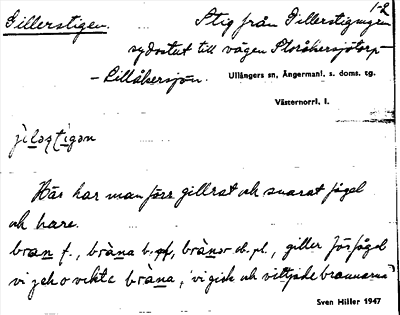 Gillerstigen.
1-2
Stig från Gillerstigmyren
sydostut till vägen Storåkersjötorp
- Lillåkersjön.
Ullångers sn, Ångermanl. s. doms. tg.
Västernorrl. l.
Här har man förr gillrat och snarat fågel
och hare.
bran f., bràna b. , brànor ob. pl., giller för fågel
vi jek o vikte bràna, 'vi gick och vittjade brannarna'
Sven Hiller 1947